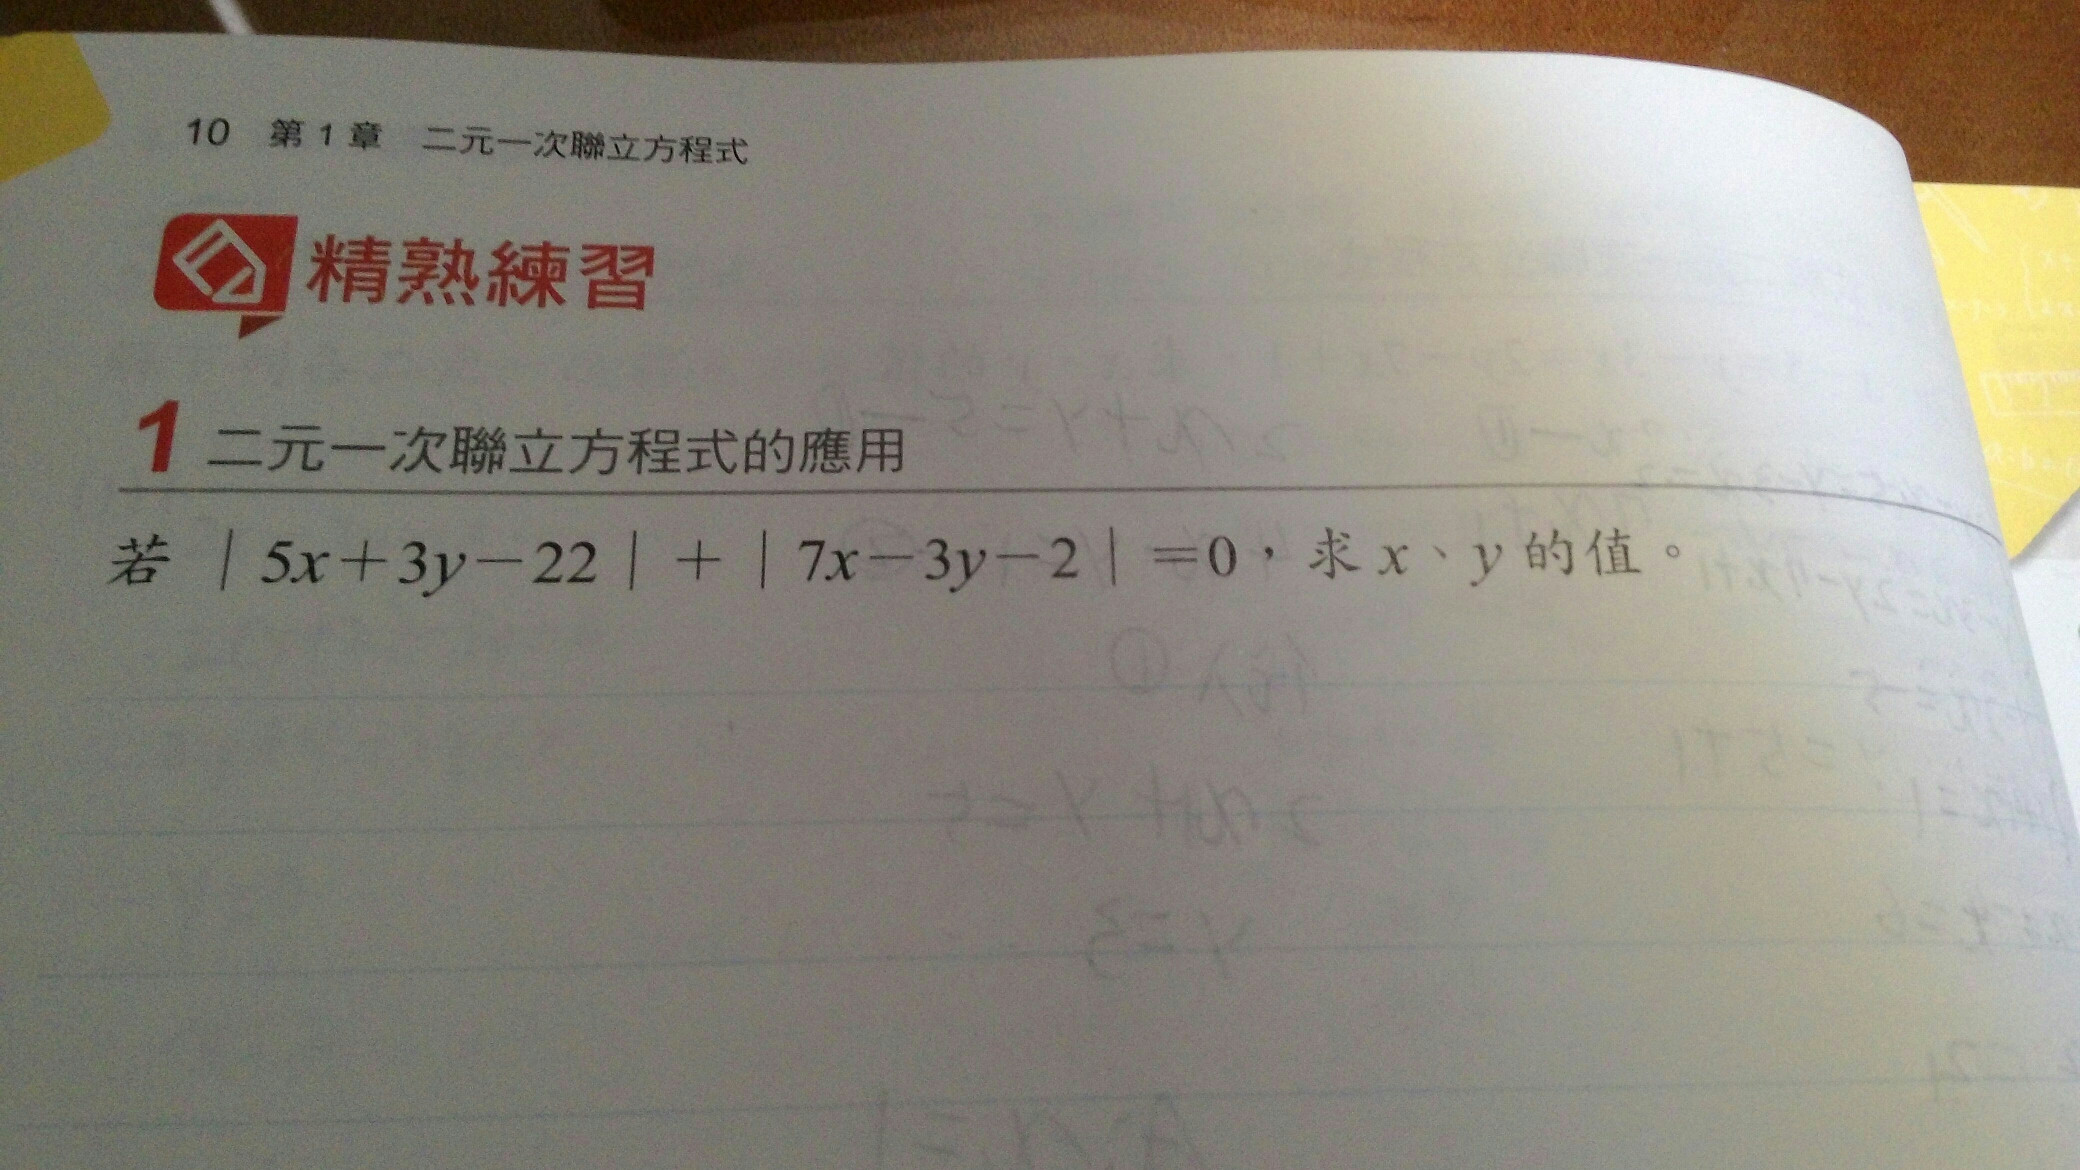 10 第1章 二元一次聯立方程式
精熟練習
1 二元一次聯立方程式的應用
若 | 5x＋3y－22 | ＋ | 7x－3y－2 | ＝0，求 x、y 的值。